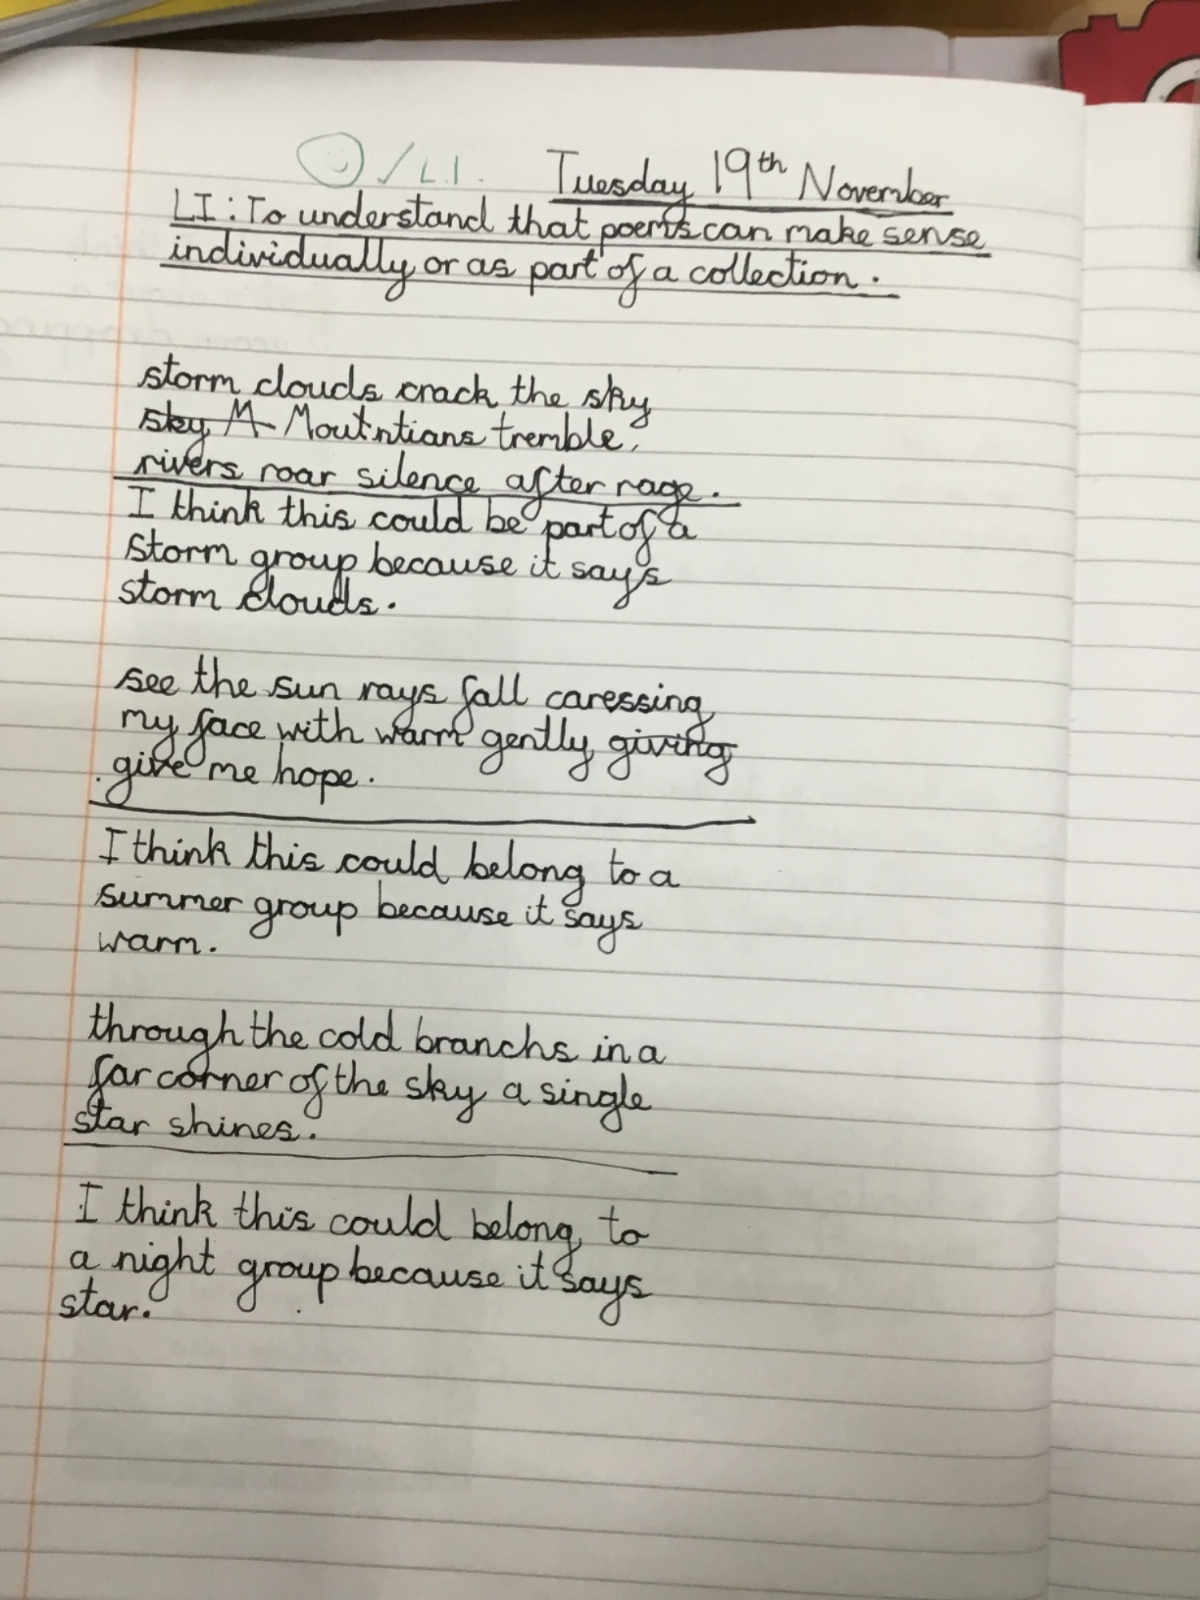 ✓ L.I.
Tuesday 19th November
LI: To understand that poems can make sense
individually or as part of a collection.
storm clouds crack the sky
sky M Moutntians tremble,
rivers roar silence after rage.
I think this could be part of a
storm group because it says
storm clouds.
see the sun rays fall caressing
my face with warm gently giving
give me hope.
I think this could belong to a
summer group because it says
warm.
through the cold branchs in a
far corner of the sky a single
star shines.
I think this could belong to
a night group because it says
star.